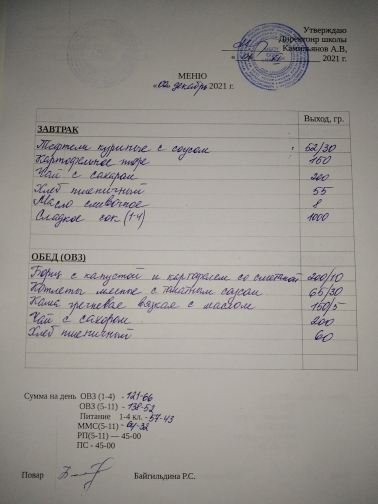 Утверждаю
Директонр школы
Камильянов А.В,
2021 г.
МЕНЮ
«02» декабрь 2021 г.
Выход, гр.
ЗАВТРАК
Тефтели куриные с соусом 52/30
Картофельное пюре 150
Чай с сахаром 200
Хлеб пшеничный 55
Масло сливочное 8
Сладкое сок (1-4) 1000
ОБЕД (ОВЗ)
Борщ с капустой и картофелем со сметаной 200/10
Котлеты мясные с томатным соусом 65/30
Каша гречневая вязкая с маслом 150/5
Чай с сахаром 200
Хлеб пшеничный 60
Сумма на день ОВЗ (1-4) - 121-66
ОВЗ (5-11) - 138-52
Питание 1-4 кл. - 57-43
ММС(5-11) - 64-32
РП(5-11) — 45-00
ПС - 45-00
Повар Байгильдина Р.С.